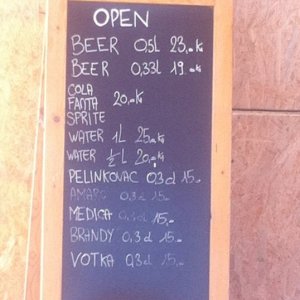 OPEN
BEER 0,5L 23,-Kn
BEER 0,33L 19.-Kn
COLA
FANTA 20,-Kn
SPRITE
WATER 1L 25,-Kn
WATER ½L 20,-Kn
PELINKOVAC 0,3d 15,-
AMARO 0,3d 15,-
MEDICA 0,3d 15,-
BRANDY 0,3d 15,-
VOTKA 0,3d 15,-